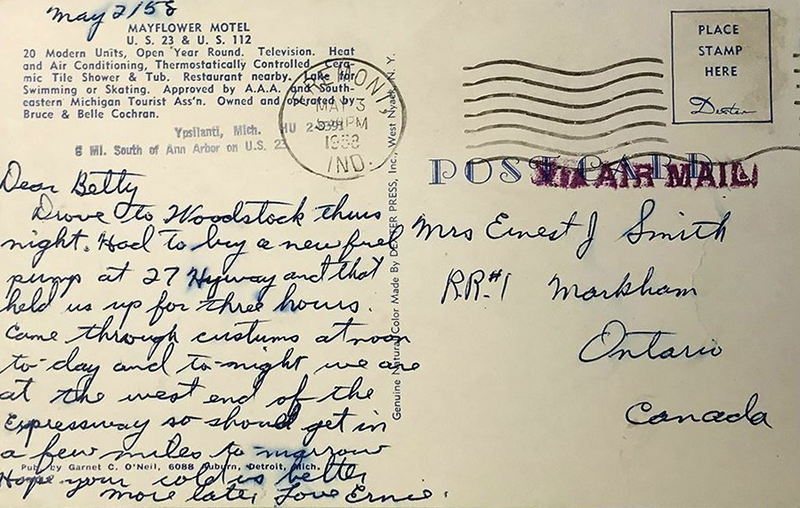 May 2/58
MAYFLOWER MOTEL
U. S. 23 & U. S. 112
20 Modern Units, Open Year Round. Television. Heat
and Air Conditioning, Thermostatically Controlled. Cera-
mic Tile Shower & Tub. Restaurant nearby. Lake for
Swimming or Skating. Approved by A.A.A. and South-
eastern Michigan Tourist Ass'n. Owned and operated by
Bruce & Belle Cochran.
Ypsilanti, Mich. HU
6 Mi. South of Ann Arbor on U.S. 23
MAY 3
PM
1958
IND.
PLACE
STAMP
HERE
Dexter
POST CARD
VIA AIR MAIL
Dear Betty
Drove to Woodstock thurs
night. Had to buy a new fuel
pump at 27 Hyway and that
held us up for three hours.
Came through customs at noon
to-day and to-night we are
at the west end of the
Expressway so should get in
a few miles to-morrow
Hope your cold is better
More later Love Ernie.
Pub. by Garnet C. O'Neil, 6088 Auburn, Detroit, Mich.
Genuine Natural Color Made By DEXTER PRESS, Inc., West Nyack, N. Y.
Mrs Ernest J Smith
RR#1 Markham
Ontario
Canada